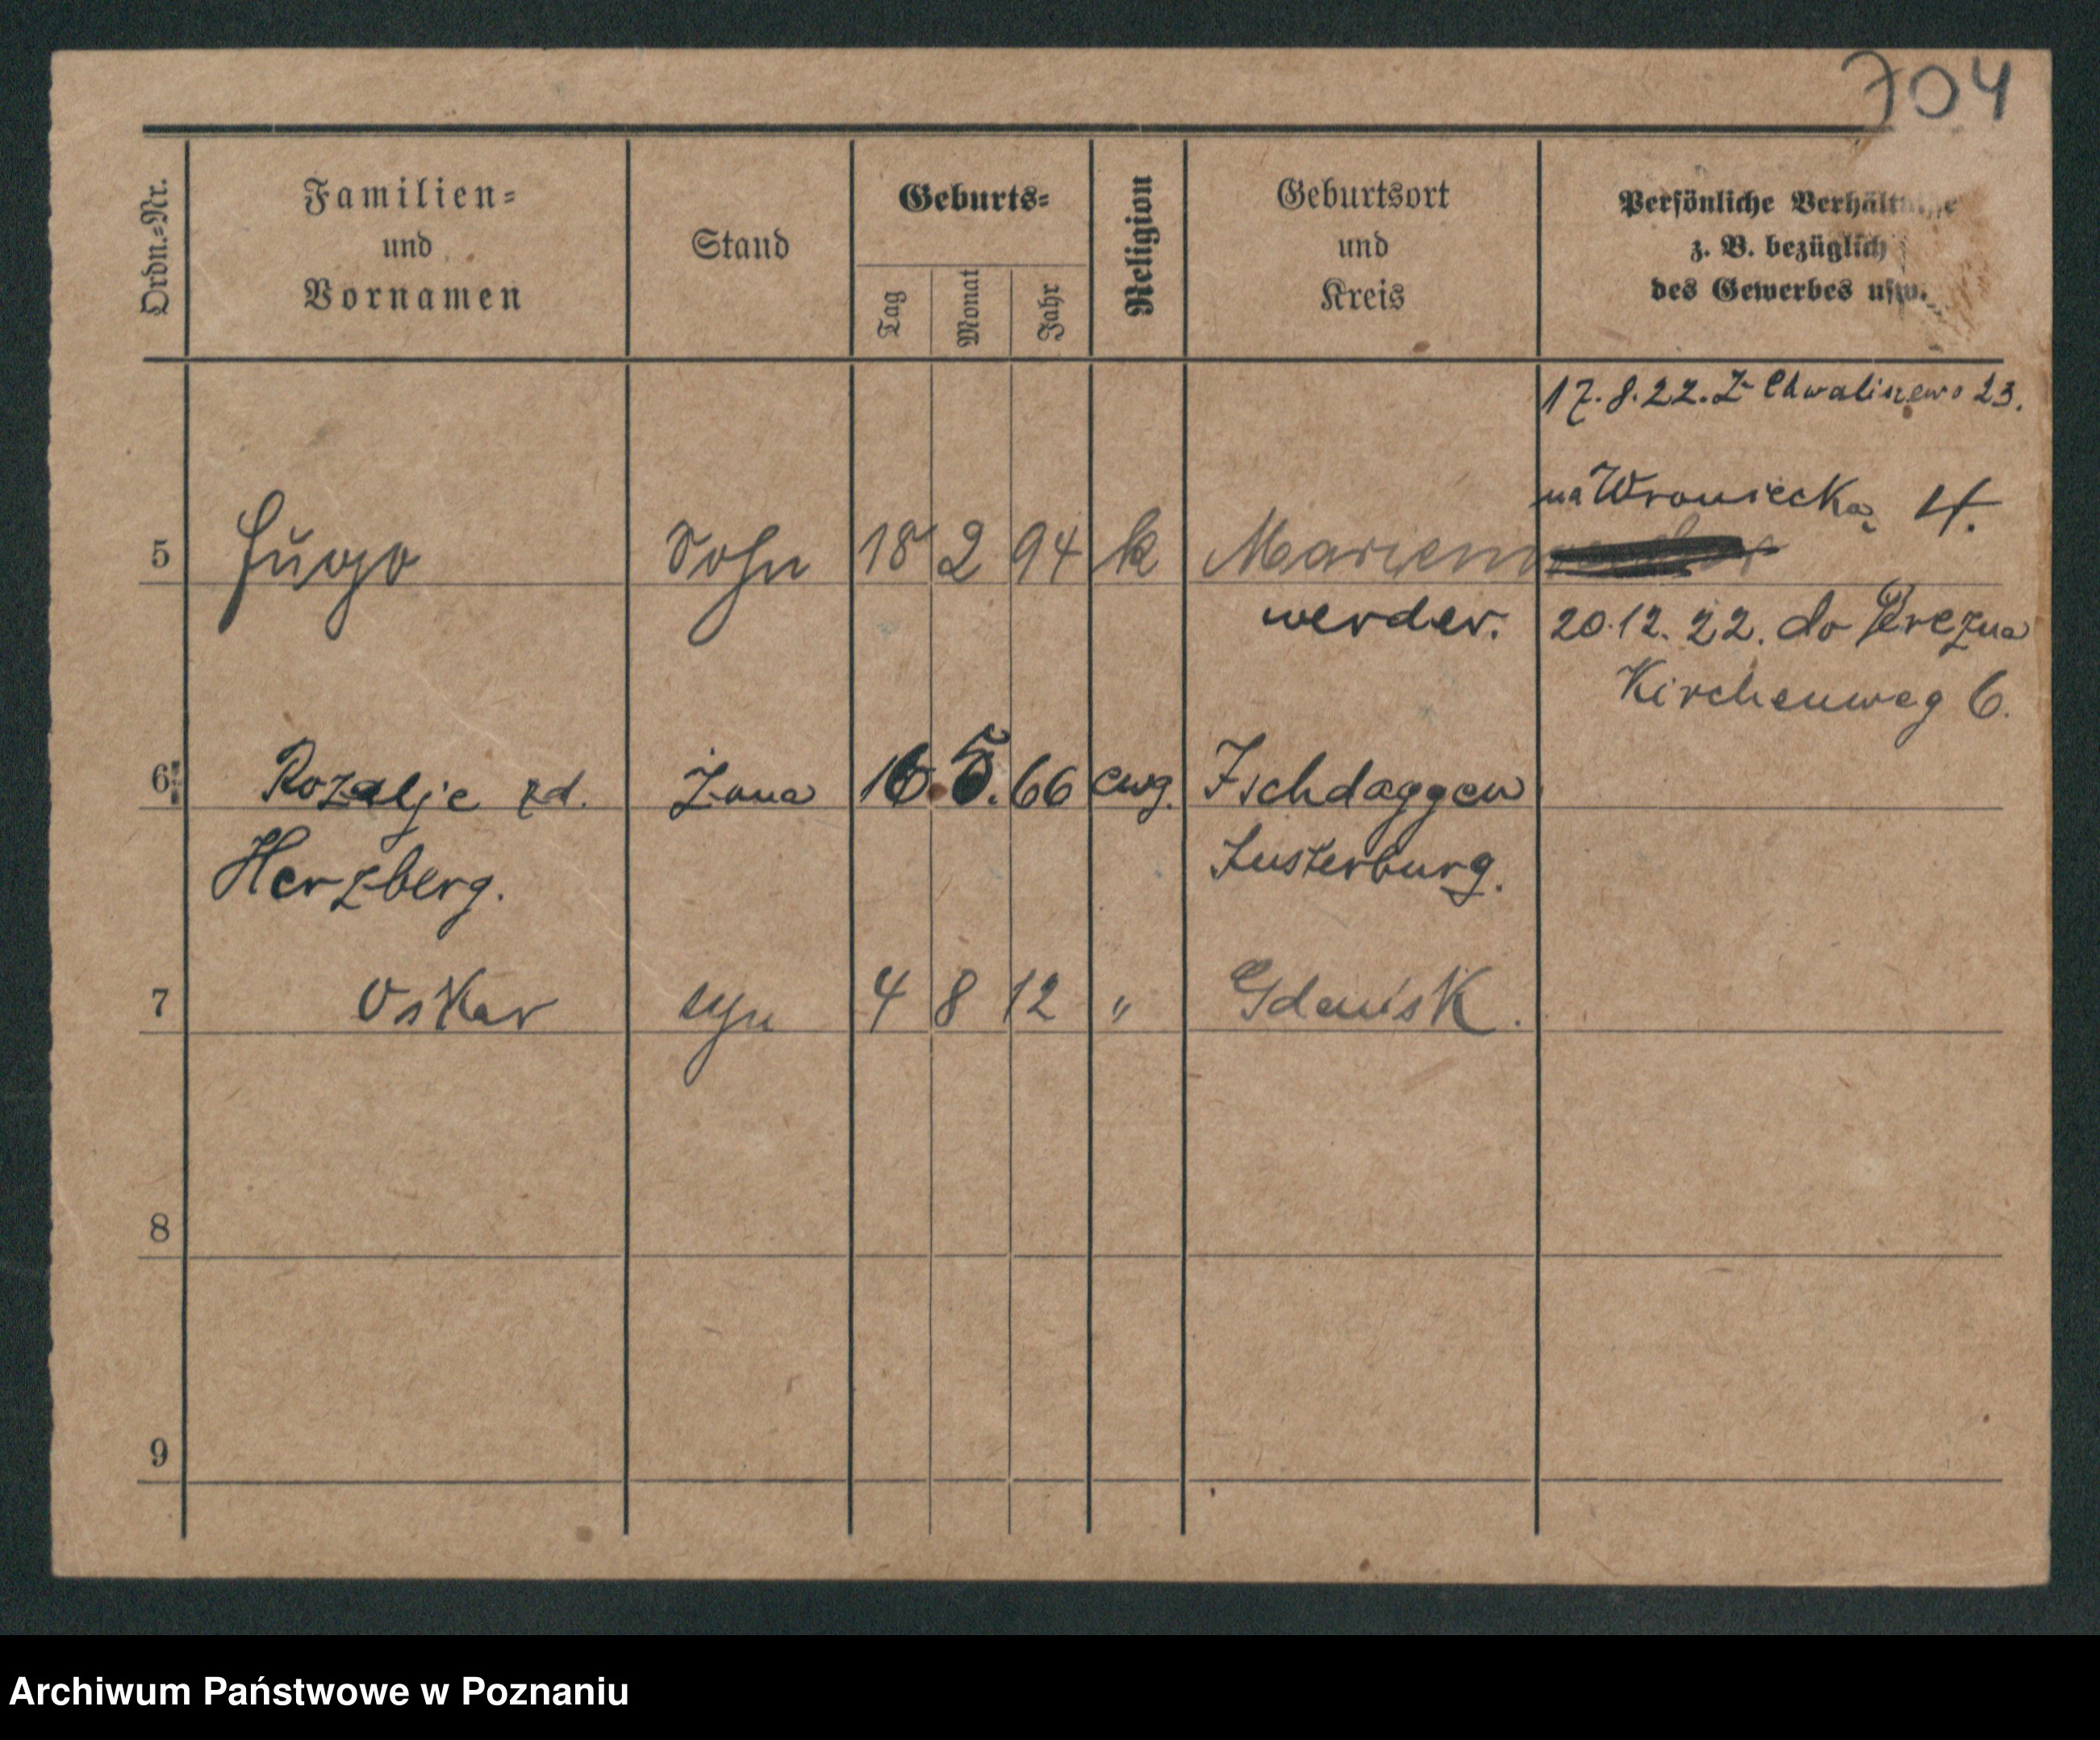 704
Ordn.-Nr.
Familien-
und
Vornamen
Stand
Geburts-
Tag
Monat
Jahr
Religion
Geburtsort
und
Kreis
Persönliche Verhältnisse
z. B. bezüglich
des Gewerbes usw.
17.8.22. Z Chwaliszewo 23.
na Wroniecką 4.
5 Hugo Sohn 18 2 94 k Marien
werder. 20.12.22. do
Kirchenweg 6.
6 Rozalje zd. Żona 16. 5. 66 ewg. Ischdaggen
Herzberg. Insterburg.
7 Oskar syn 4 8 12 " Gdańsk.
8
9
Archiwum Państwowe w Poznaniu